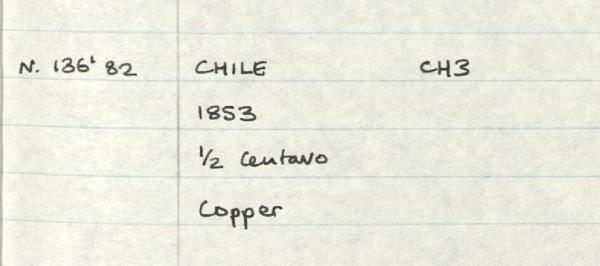 N. 136' 82 CHILE CH3
1853
1/2 Centavo
Copper